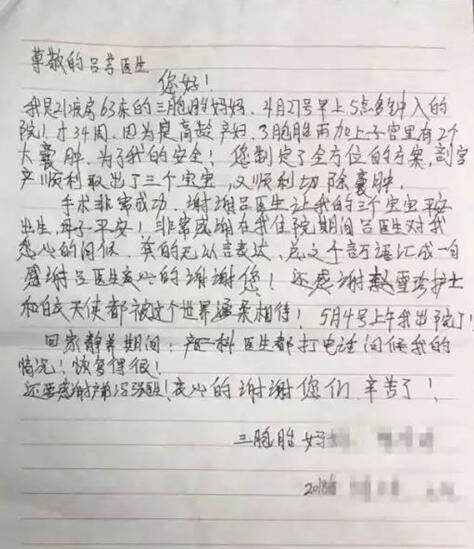 尊敬的吕芳医生
您好!
我是21病房63床的三胞胎妈妈,4月27号早上5点多钟入的
院!才34周,因为是高龄产妇,3胞胎再加上子宫里有2个
大囊肿,为了我的安全!您制定了全方位的方案,剖宫
产顺利取出了三个宝宝,又顺利切除囊肿.
手术非常成功,谢谢吕医生让我的三个宝宝平安
出生,母子平安!非常感谢在我住院期间吕医生对我
悉心的问候,真的无以言表达,总之千言万语汇成一句
感谢吕医生衷心的谢谢您!还感谢 护士
和白衣天使都被这个世界温柔相待!5月4号上午我出院了!
回家静养期间:产一科医生都打电话问候我的
情况!恢复得很!
还要感谢产前 !衷心的谢谢您们 辛苦了!
三胞胎妈
2018